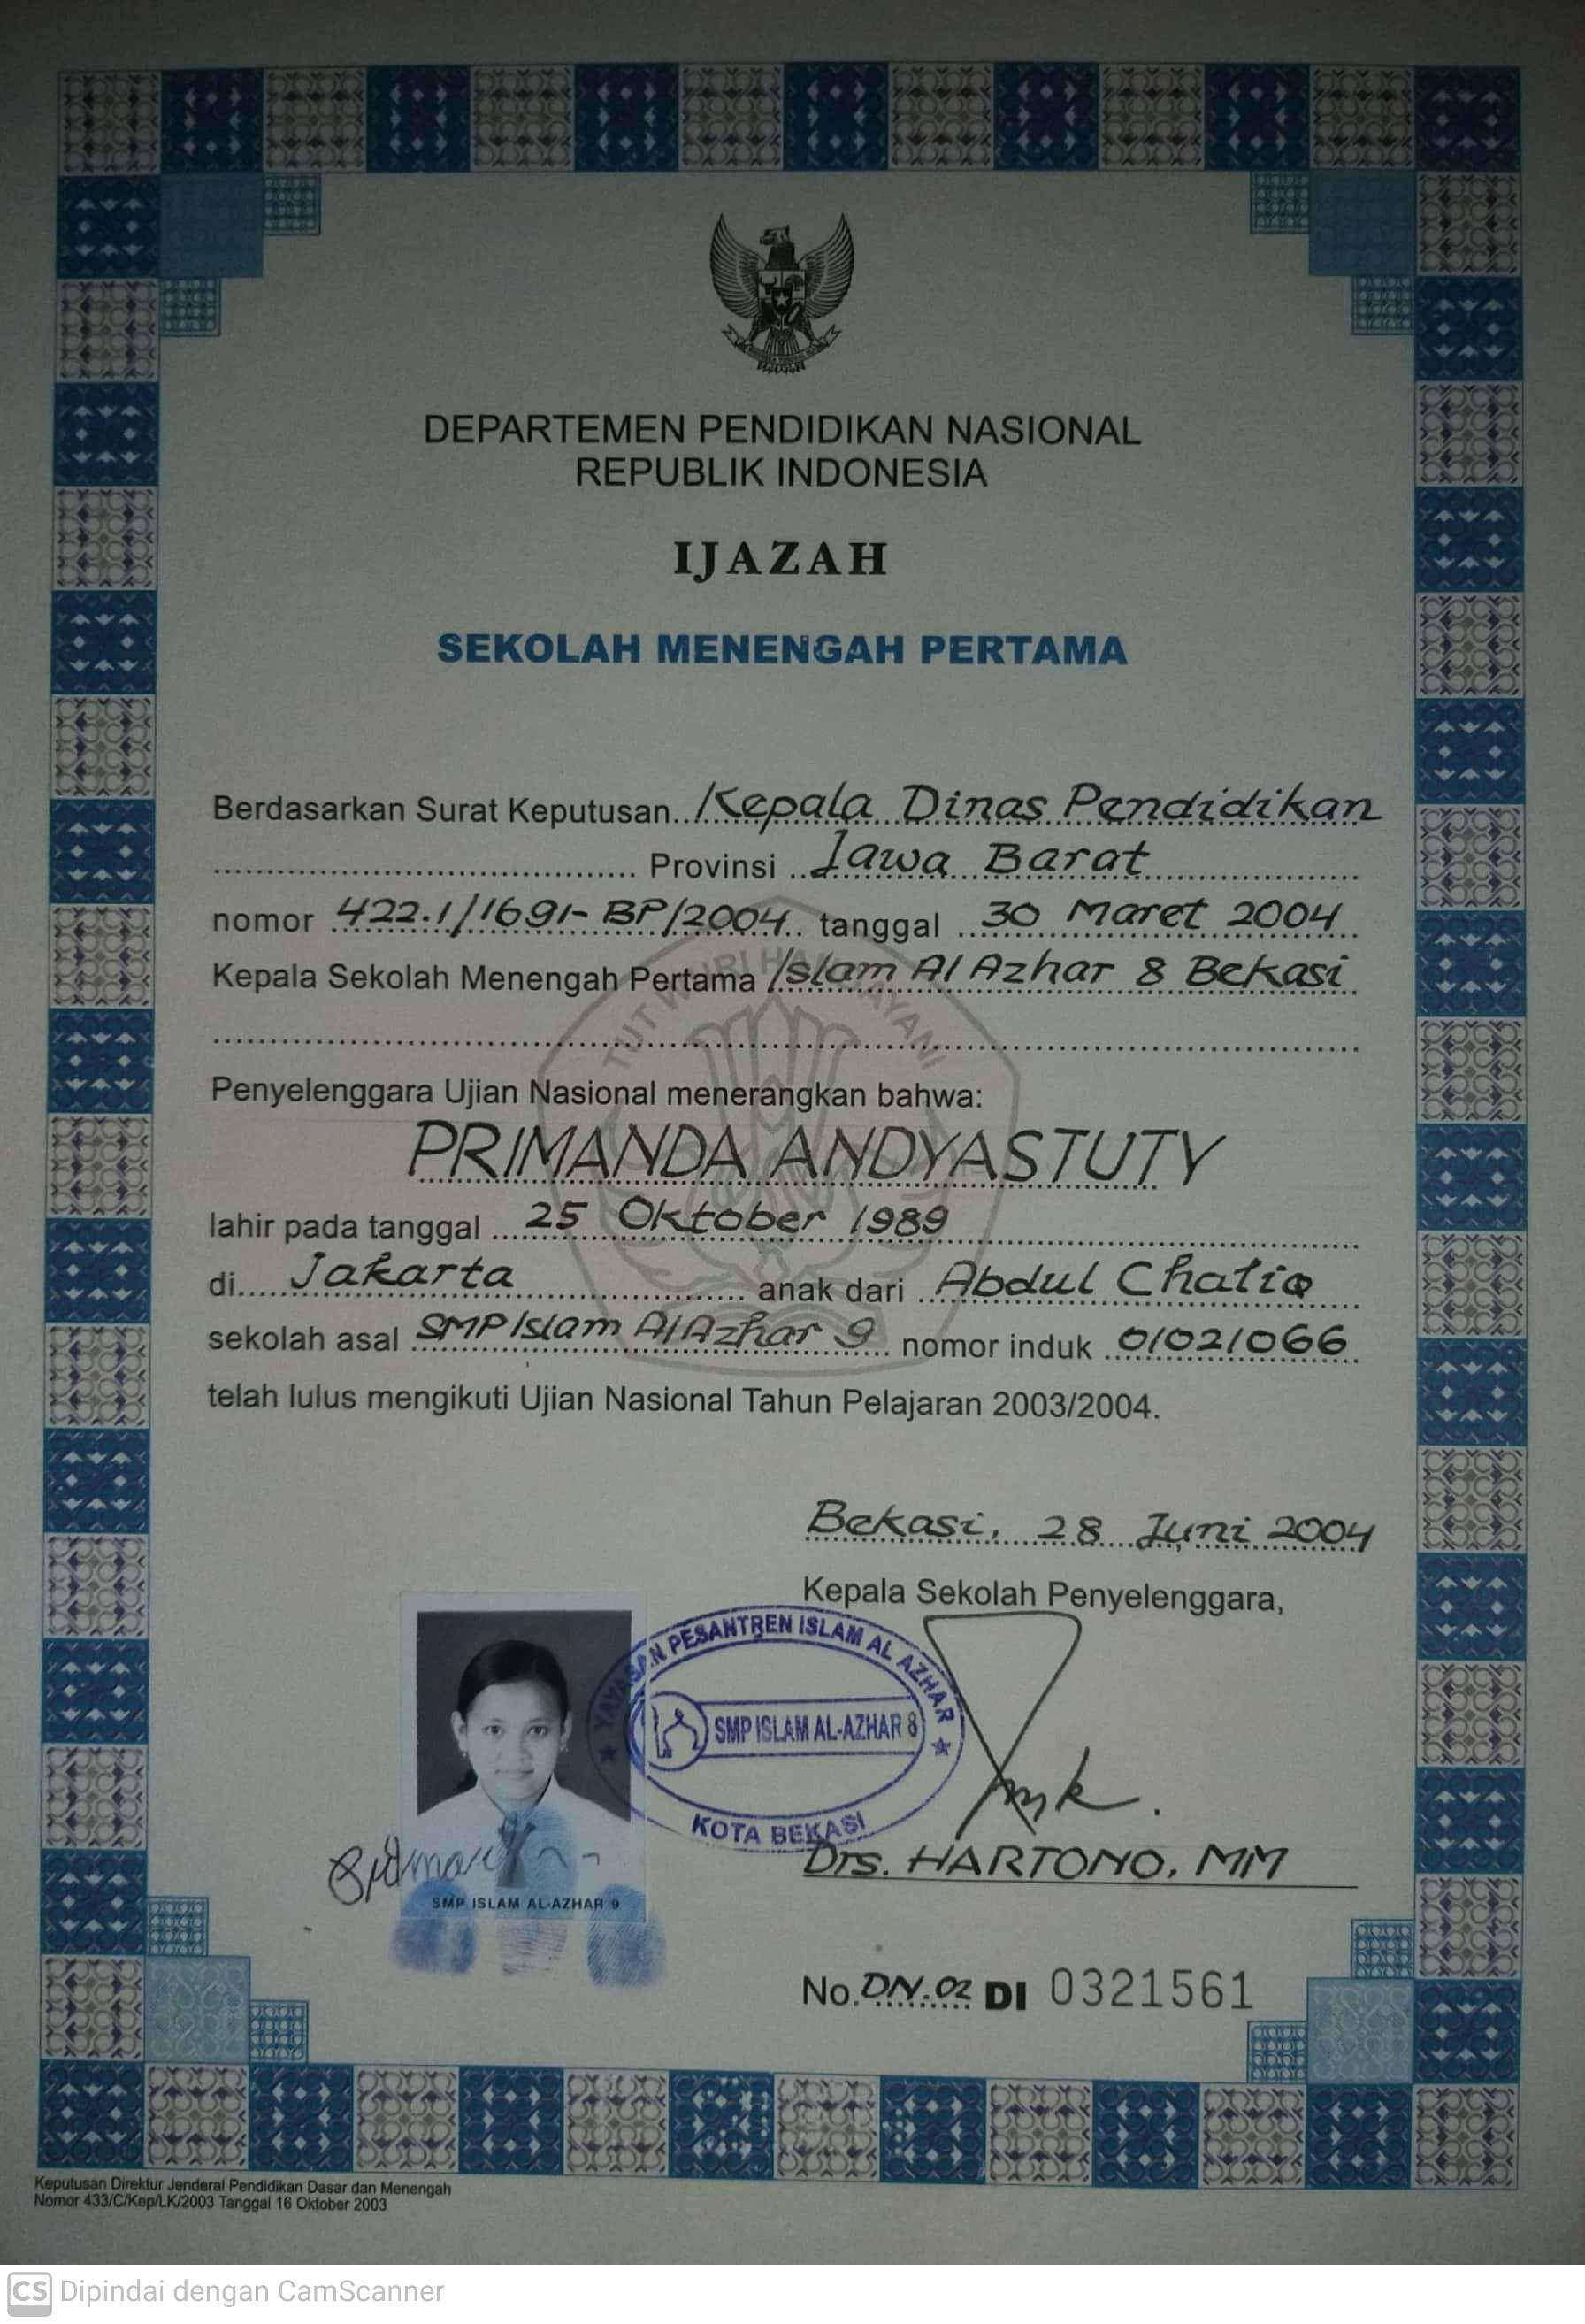 DEPARTEMEN PENDIDIKAN NASIONAL
REPUBLIK INDONESIA
IJAZAH
SEKOLAH MENENGAH PERTAMA
Berdasarkan Surat Keputusan Kepala Dinas Pendidikan
Provinsi Jawa Barat
nomor 422.1/1691-BP/2004 tanggal 30 Maret 2004
Kepala Sekolah Menengah Pertama Islam Al Azhar 8 Bekasi
TUT WURI HANDAYANI
Penyelenggara Ujian Nasional menerangkan bahwa:
PRIMANDA ANDYASTUTY
lahir pada tanggal 25 Oktober 1989
di Jakarta anak dari Abdul Chaliq
sekolah asal SMP Islam Al Azhar 9 nomor induk 01021066
telah lulus mengikuti Ujian Nasional Tahun Pelajaran 2003/2004.
Bekasi, 28 Juni 2004
Kepala Sekolah Penyelenggara,
YAYASAN PESANTREN ISLAM AL AZHAR
SMP ISLAM AL-AZHAR 8
KOTA BEKASI
Drs. HARTONO, MM
SMP ISLAM AL-AZHAR 9
No. DN.02 DI 0321561
Keputusan Direktur Jenderal Pendidikan Dasar dan Menengah
Nomor 433/C/Kep/LK/2003 Tanggal 16 Oktober 2003
CS Dipindai dengan CamScanner